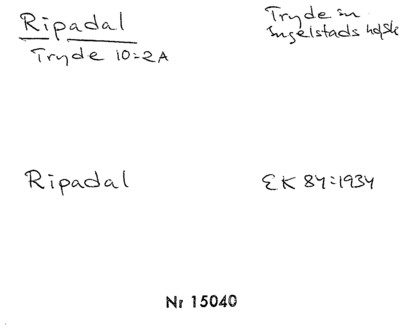 Ripadal
Tryde 10:2A
Tryde sn
Ingelstads hd, Sk
Ripadal
EK 84:1934
Nr 15040